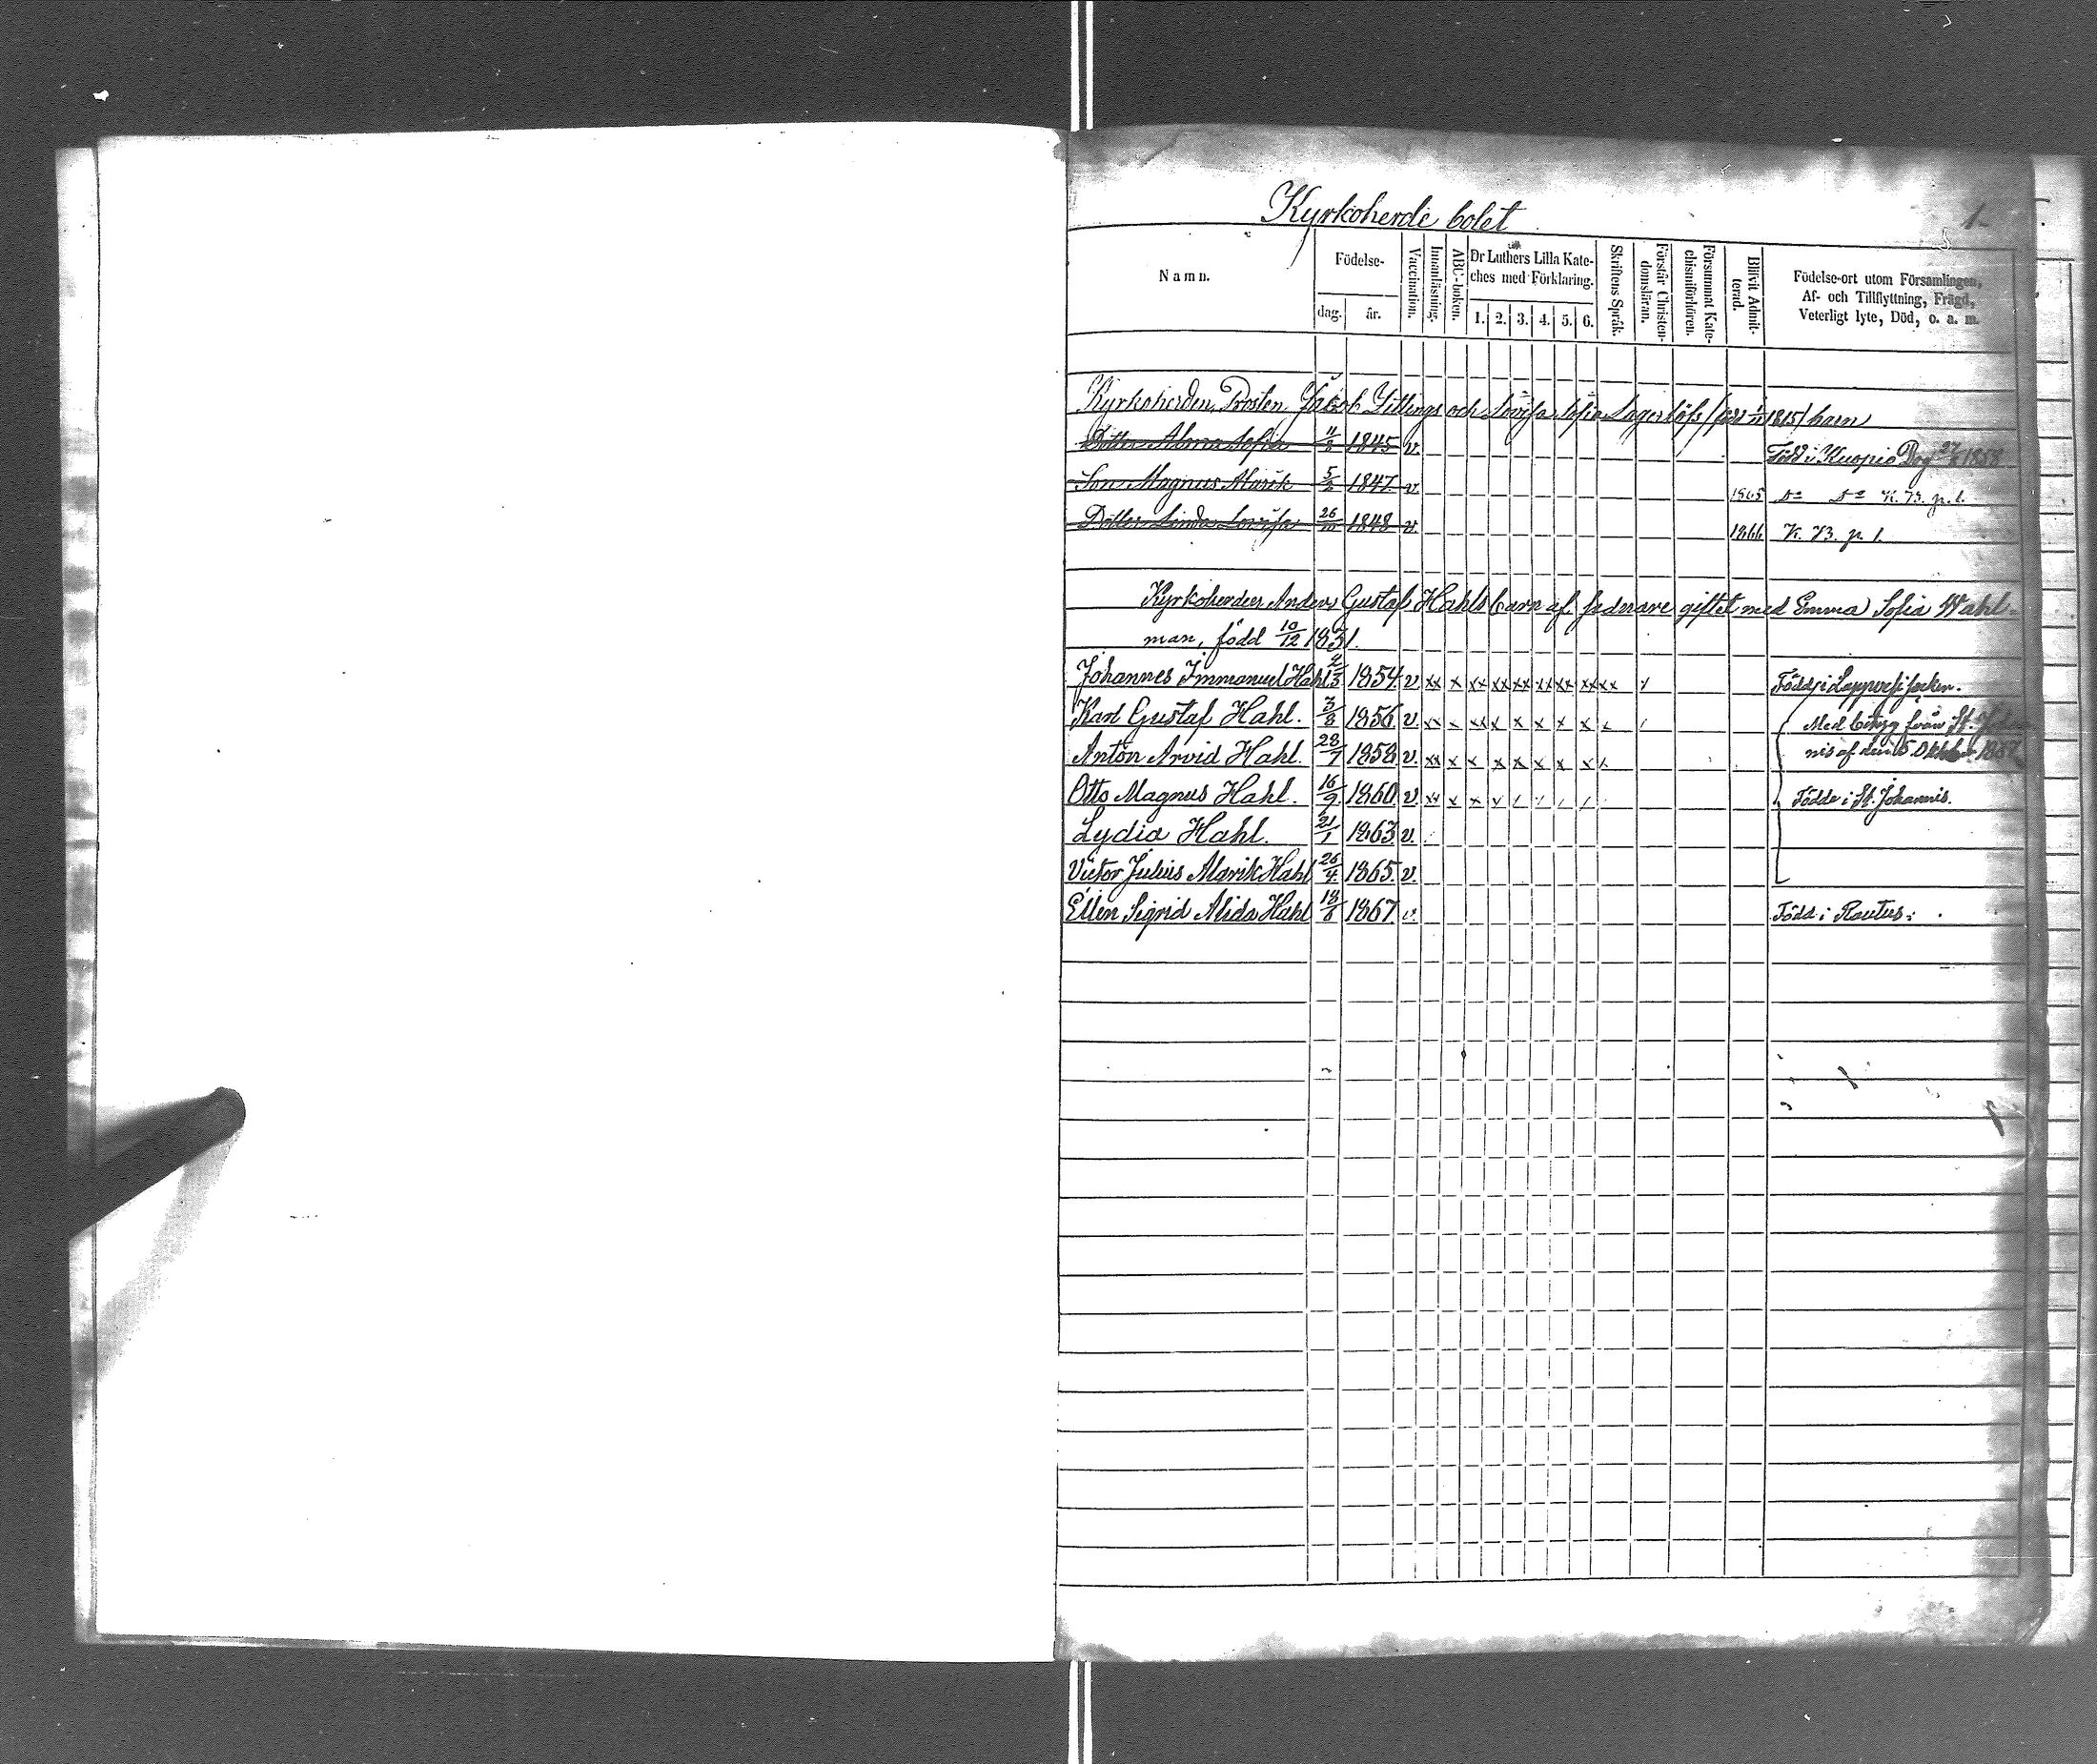 Kyrkoherde bolet
1
Namn.
Födelse-
dag.
år.
Vaccination.
Innanläsning.
ABC-boken.
Dr Luthers Lilla Kate-
ches med Förklaring.
1. 2. 3. 4. 5. 6.
Skriftens Språk.
Förstår Christen-
domsläran.
Försummat Kate-
chismiförhören.
Blifvit Admit-
terad.
Födelse-ort utom Församlingen,
Af- och Tillflyttning, Frägd,
Veterligt lyte, Död, o. a. m.
Kyrkoherden, Prosten Jakob och Lovisa Sofia 1815 barn
Dotter Alma Sofia 1845 v. Född i Kuopio 1858
Son Magnus Alarik 5/2 1847. v. 1865 Do Do K. B. p. 1.
Dotter Linda Lovisa 26/10 1848 v. 1866 K. B. p. 1.
Kyrkoherden Anders Gustaf Hahls barn af sednare giftet med Emma Sofia Wahl-
man, född 10/12 1831.
Johannes Immanuel Hahl 1854. v. xx x xx xx xx xx xx xx xx Född i Lappvesi socken.
Karl Gustaf Hahl. 3/8 1856. v. xx x xx x x x x x x Med betyg från St. Johan
Anton Arvid Hahl. 28/7 1858. v. xx x x x x x x x nis af den 15 Oktober 1867
Otto Magnus Hahl. 16/9 1860. v. xx x x Födde i St. Johannis.
Lydia Hahl. 21/1 1863. v.
Victor Julius Alarik Hahl 26/4. 1865. v.
Ellen Sigrid Alida Hahl 18/6 1867. v. Född i Rautus.